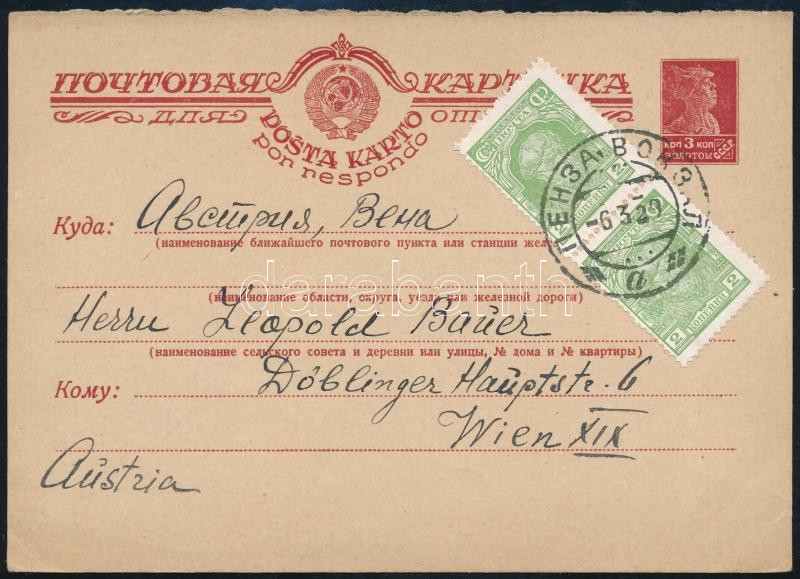 ПОЧТОВАЯ КАРТОЧКА
ДЛЯ
POŜTA KARTO
por respondo
КОП 3 КОП
ЗОЛОТОМ
СССР
ПОЧТА
2
2
КОПЕЙКИ
2
ПЕНЗА ВОКЗАЛ
-6.3.29
а
Куда: Австрия, Вена
(наименование ближайшего почтового пункта или станции желез
(наименование области, округа, уезда или железной дороги)
Herrn Leopold Bauer
(наименование сельского совета и деревни или улицы, № дома и № квартиры)
Кому: Döblinger Hauptstr. 6
Wien XIX
Austria
darabanth